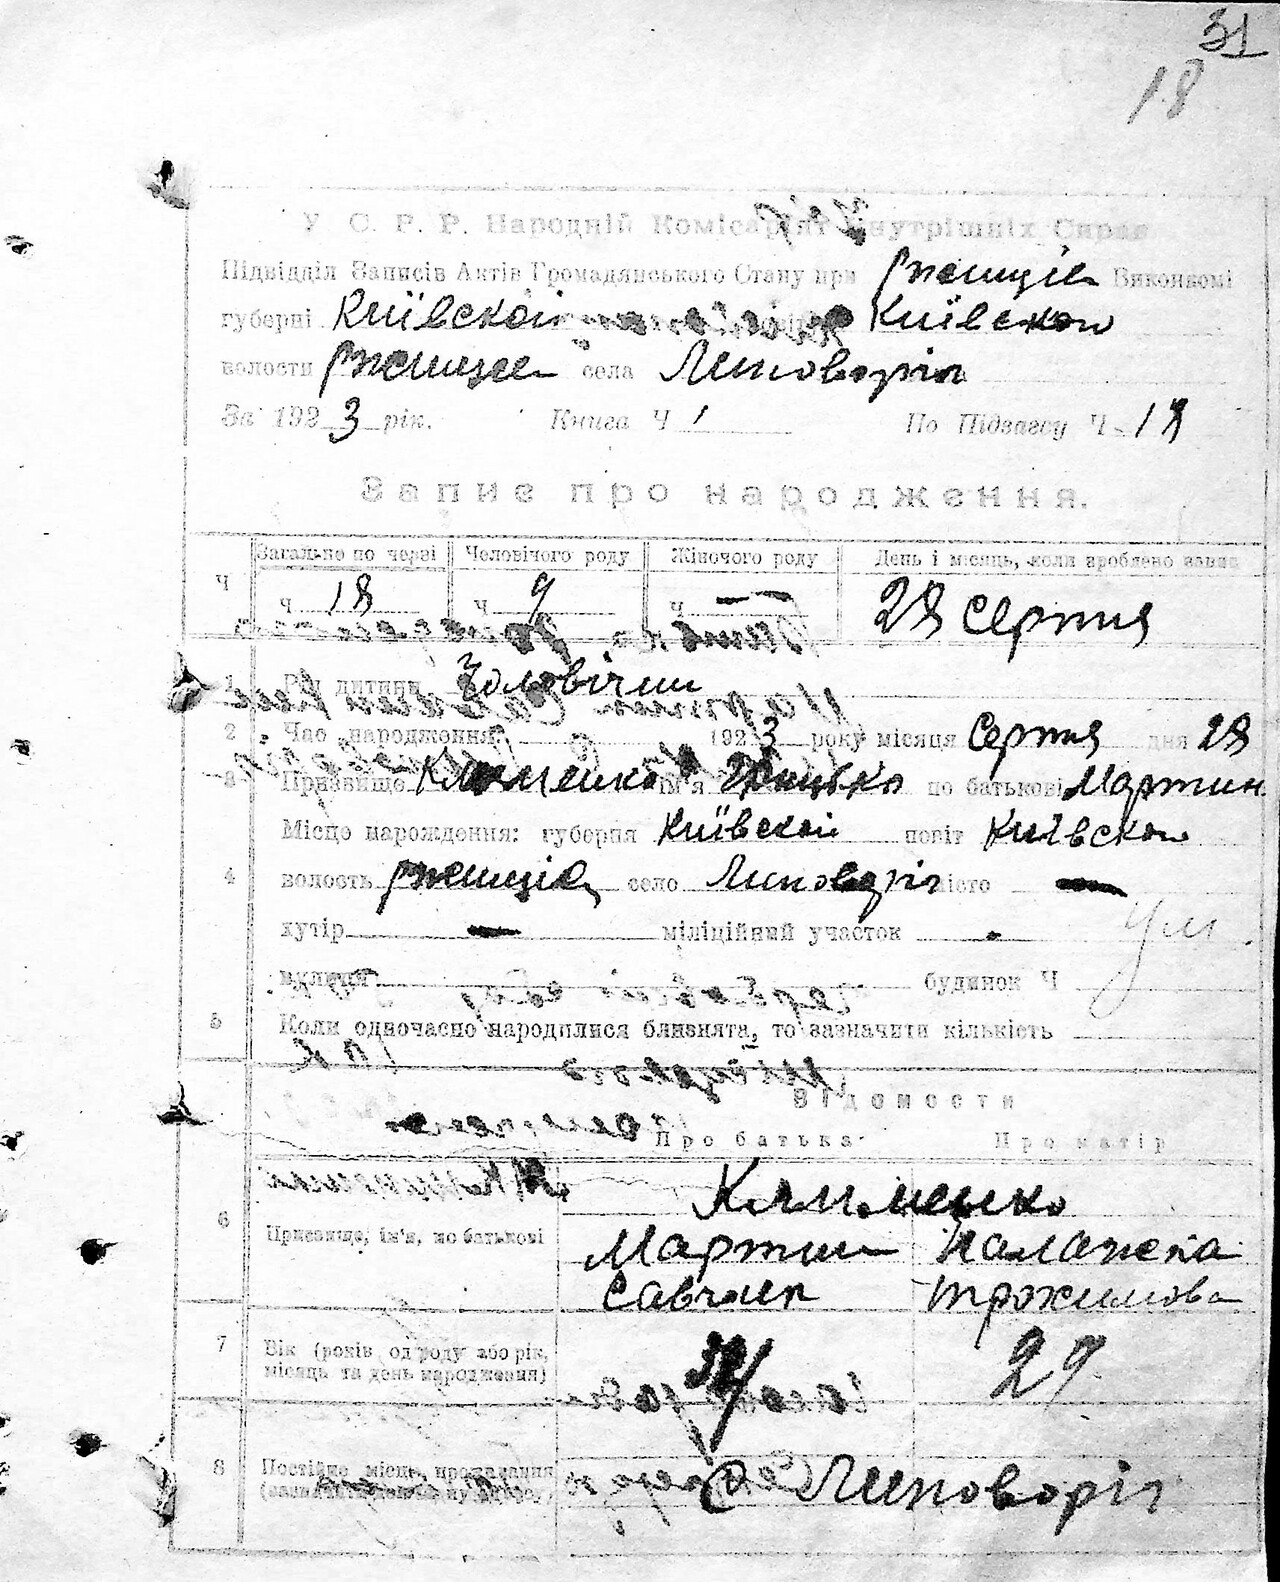 31
18
У С. Р. Р. Народній Комісаріят Внутрішніх Справ
Підвідділ Записів Актів Громадянського Стану при Ржищів Виконкомі
губерні Київской Київскои
волости села Липоворіг
За 1923 рік. Книга Ч 1 По Підзагсу Ч. 18
Запис про народження.
Загальне по черзі Человічого роду Жіночого роду День і місяць, коли зроблено запис
Ч ч 18 ч 9 ч — 28 Серпня
1 Рід дитини Чоловічии
2 Час народження: 1923 року місяця Серпня дня 28
3 Призвище Клименко ім'я Грицько по батькові Мартин
Місце народження: губерня Київской повіт Київскои
4 волость село Липоворіг місто —
хутір — міліційний участок
вулиця будинок Ч
5 Коли одночасно народилися близнята, то зазначити кількість
Відомости
Про батька Про матір
6 Призвище, ім'я, по батькові
Клименко
Мартин Палажка
Савчин Трохимова
7 Вік (років од роду або рік, місяць та день народження) 29
8 Постійне місце проживання С Липоворіг